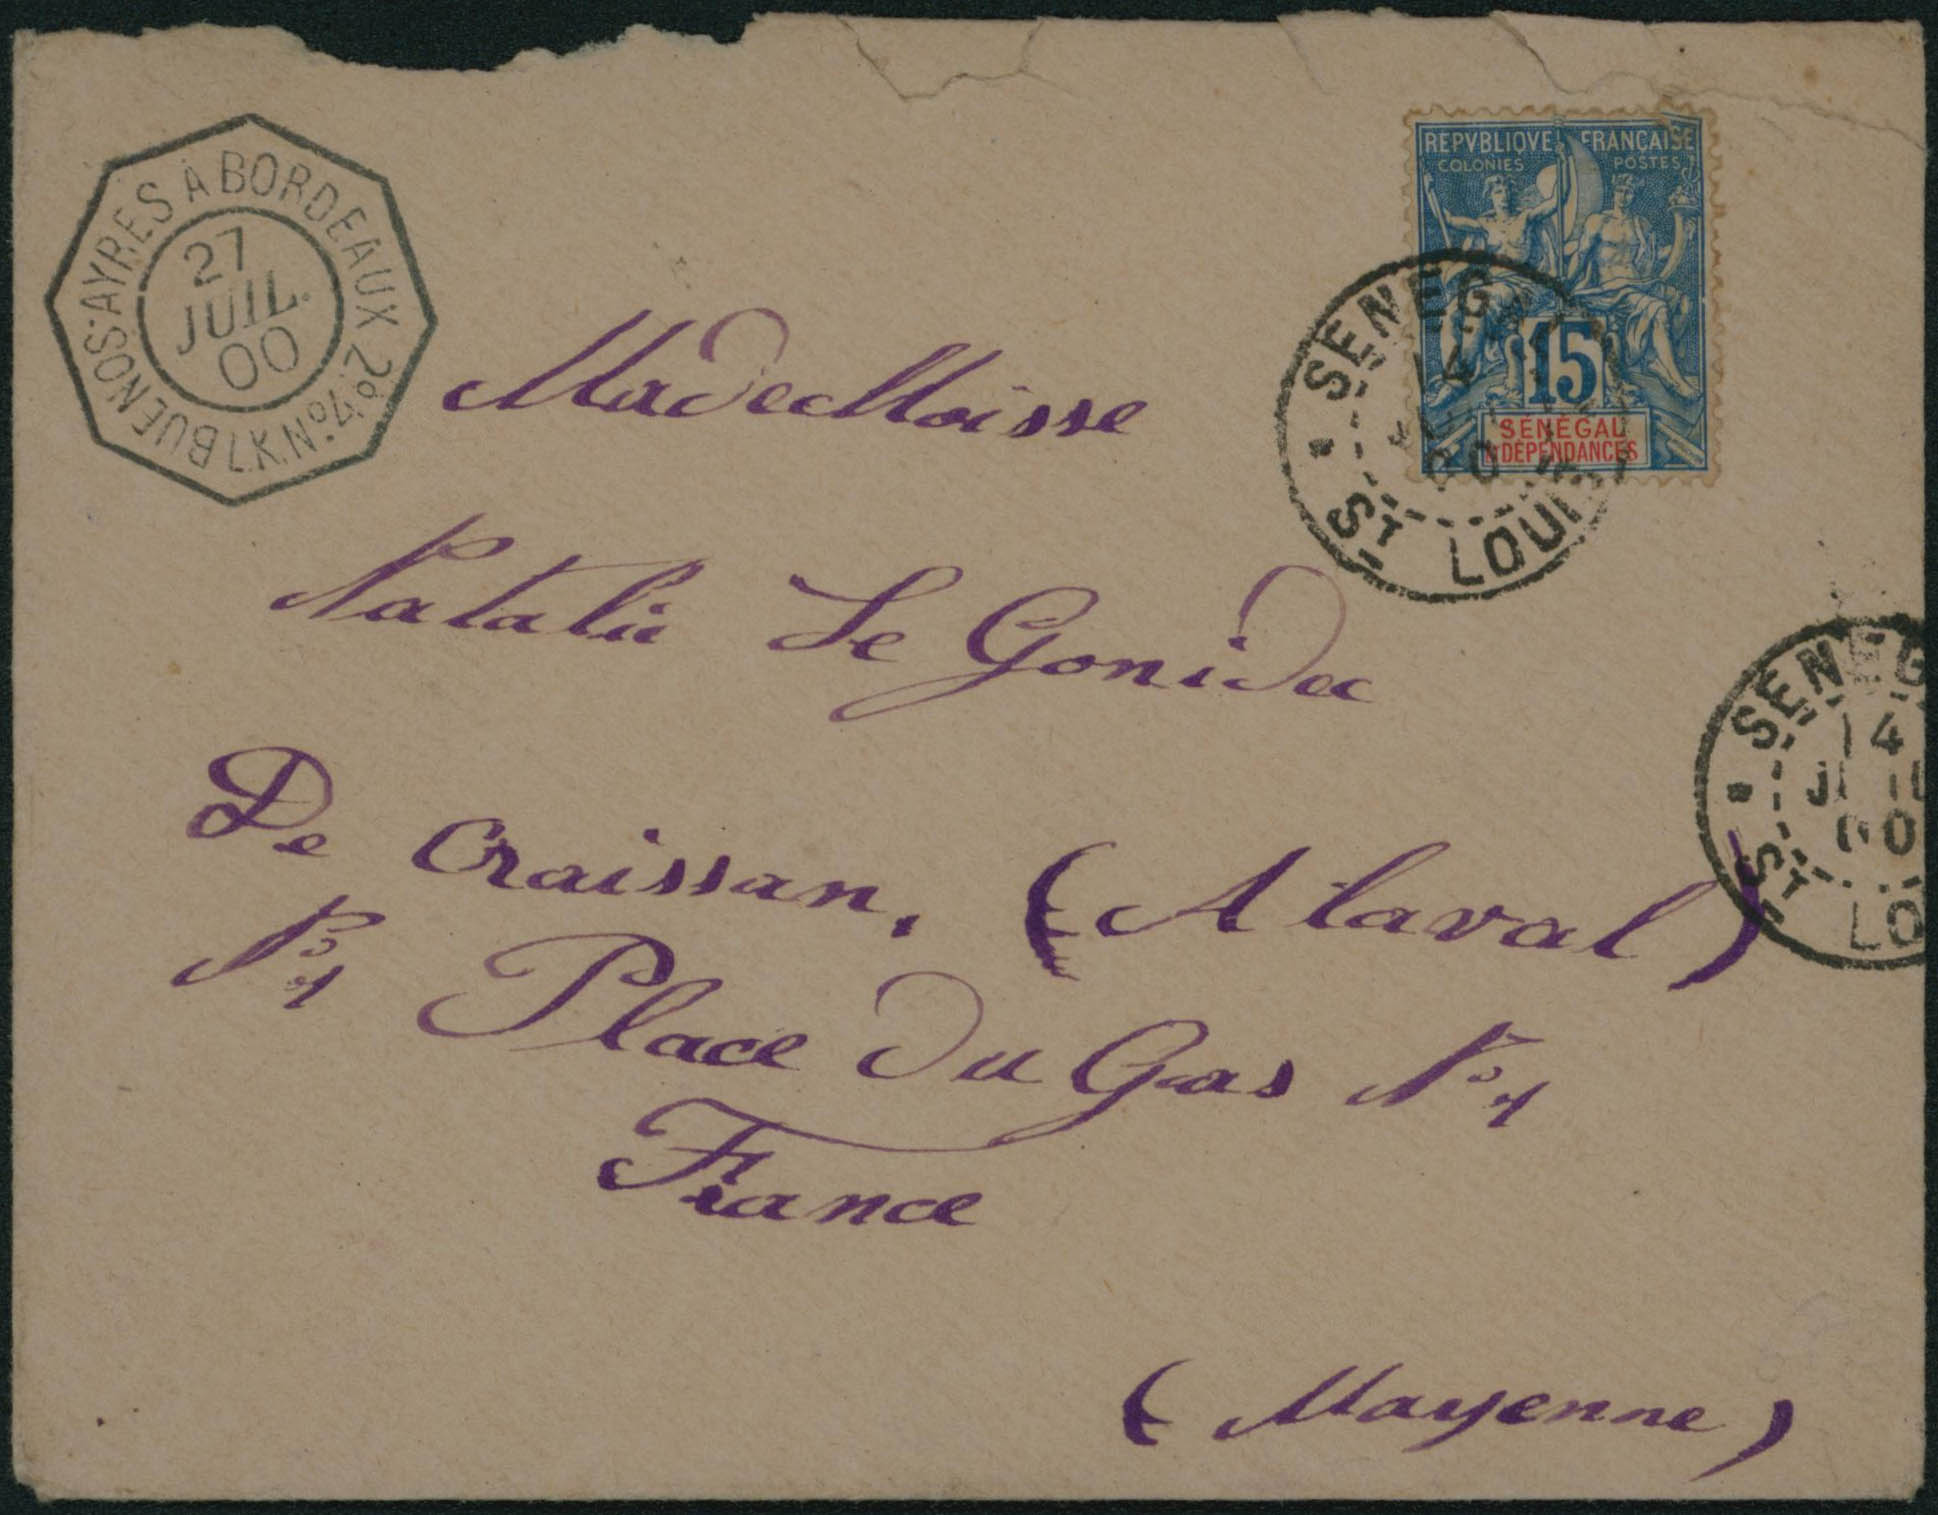 BUENOS-AYRES À BORDEAUX 2º L.K.Nº
27
JUIL.
00
REPVBLIQVE FRANÇAISE
COLONIES POSTES
15
SÉNÉGAL
ET DÉPENDANCES
SENEGAL
14
00
ST LOUIS
MadeMoisse
Natalie Le Gonidec
De Craissan, (A laval)
Nº 4 Place du Gas Nº 4
France
(Mayenne)
SENEG
14
JUIL
00
ST LOU